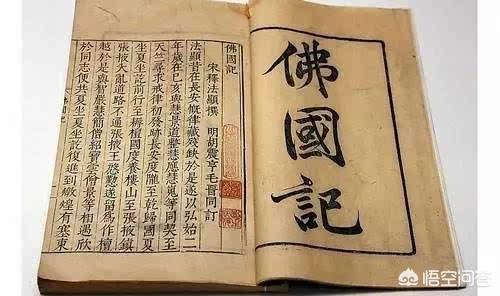 佛國記
佛國記
宋釋法顯撰 明胡震亨毛晉同訂
法顯昔在長安慨律藏殘缺於是遂以弘始二
年歲在己亥與慧景道整慧應慧嵬等同契至
天竺尋求戒律初發跡長安度隴至乾歸國夏
坐夏坐訖前行至耨檀國度養樓山至張掖鎮
張掖大亂道路不通張掖王慇懃遂留為作檀
越於是與智嚴慧簡僧紹寶雲僧景等相遇欣
於同志便共夏坐夏坐訖復進到燉煌有塞東
悟空问答